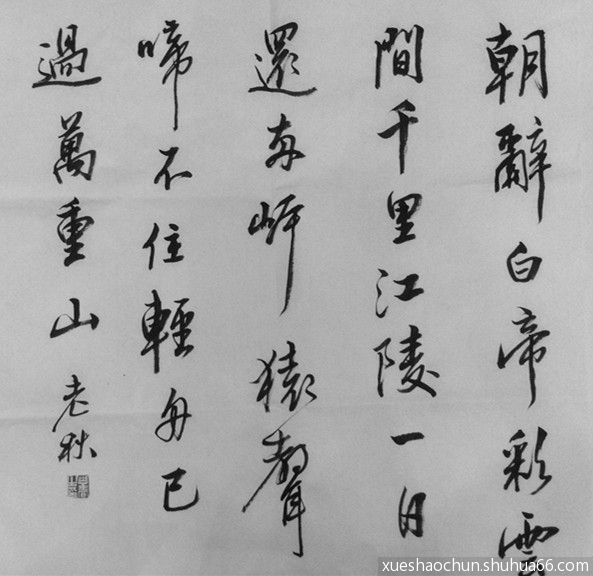 朝辭白帝彩雲
間千里江陵一日
還兩岸猿聲
啼不住輕舟已
過萬重山
老秋
xueshaochun.shuhua66.com